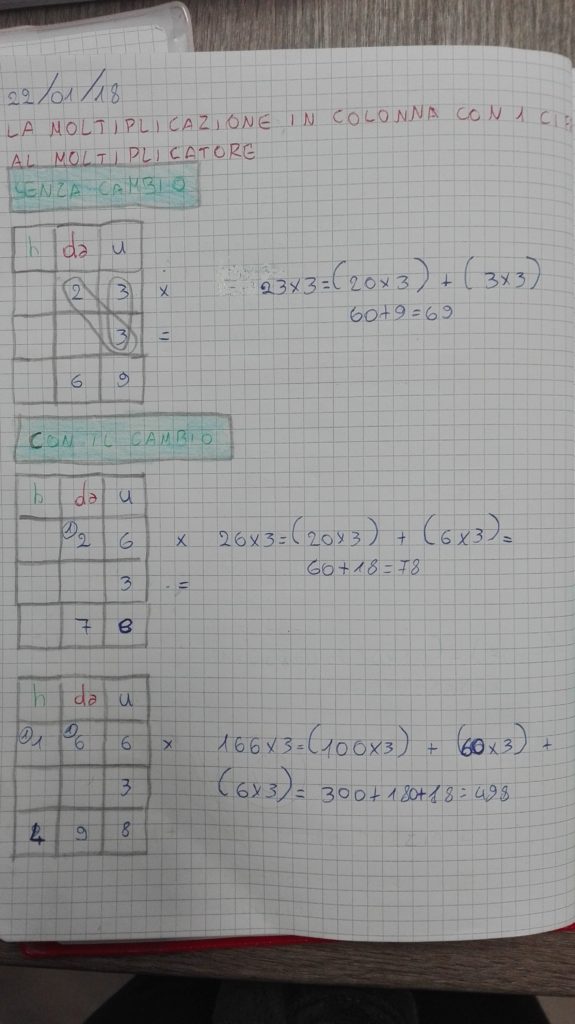 22/01/18
LA MOLTIPLICAZIONE IN COLONNA CON 1
AL MOLTIPLICATORE
SENZA CAMBIO
h da u
2 3 x 23x3=(20x3) + (3x3)
60+9=69
3 =
6 9
CON IL CAMBIO
h da u
1 2 6 x 26x3=(20x3) + (6x3)=
60+18=78
3 =
7 8
h da u
1 1 1 6 6 x 166x3=(100x3) + (60x3) +
3 (6x3)= 300+180+18=498
4 9 8